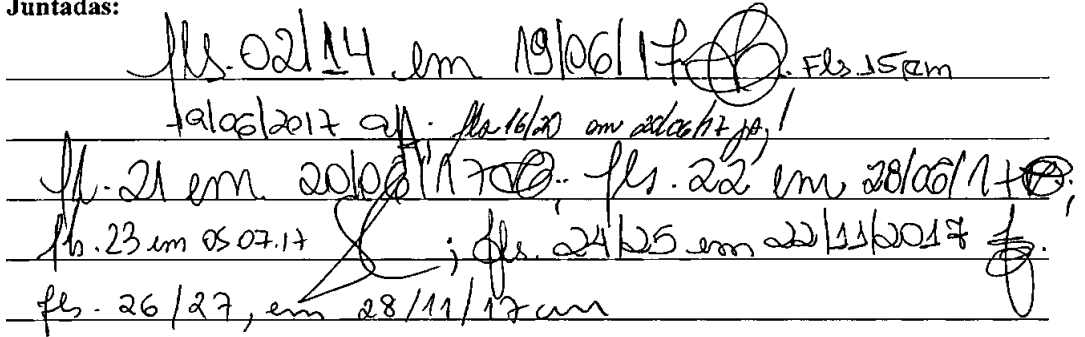 Juntadas:
fls. 02/14 em 19/06/17 . Fls. 15 em
19/06/2017 ; fls 16/20 em 20/06/17 ;
fl. 21 em 20/06/17 ; fls. 22 em 28/06/17 ;
fls. 23 em 05 07.17 ; fls. 24/25 em 22/11/2017 .
fls. 26/27, em 28/11/17